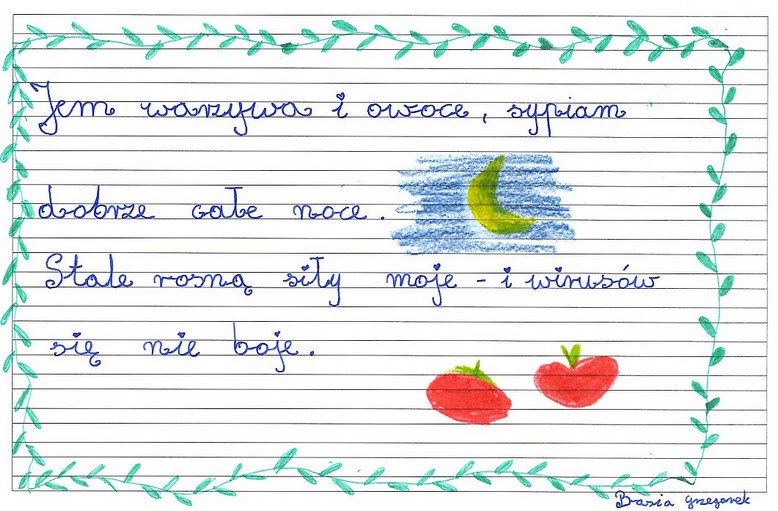 Jem warzywa i owoce, sypiam
dobrze całe noce.
Stale rosną siły moje - i wirusów
się nie boje.
Basia Grzegorek